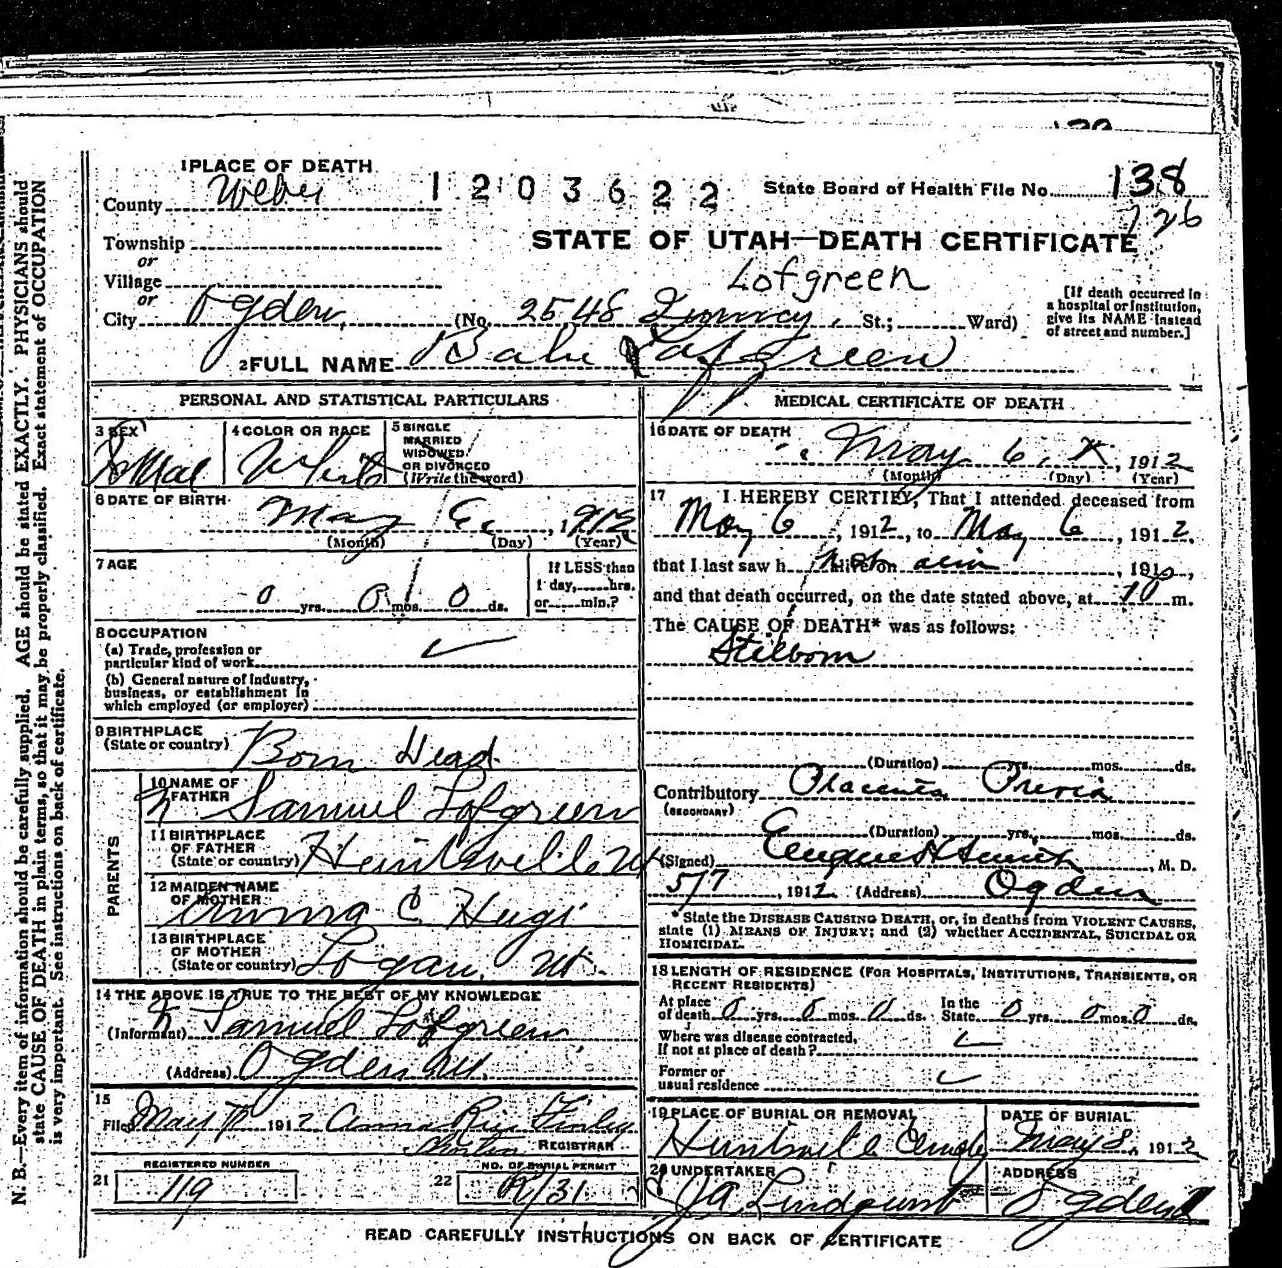 1 PLACE OF DEATH
County Weber
1203622
State Board of Health File No. 138
126
Township
or
Village
or
City Ogden,
STATE OF UTAH—DEATH CERTIFICATE
Lofgreen
(No. 2548 Quincy, St.; Ward)
[If death occurred in
a hospital or institution,
give its NAME instead
of street and number.]
2 FULL NAME Babe Lofgreen
PERSONAL AND STATISTICAL PARTICULARS
3 SEX
4 COLOR OR RACE White
5 SINGLE
MARRIED
WIDOWED
OR DIVORCED
(Write the word)
6 DATE OF BIRTH
May 6, 1912
(Month) (Day) (Year)
7 AGE
0 yrs. 0 mos. 0 ds.
If LESS than
1 day, hrs.
or min.?
8 OCCUPATION
(a) Trade, profession or
particular kind of work
(b) General nature of industry,
business, or establishment in
which employed (or employer)
9 BIRTHPLACE
(State or country) Born Dead
PARENTS
10 NAME OF
FATHER Samuel Lofgreen
11 BIRTHPLACE
OF FATHER
(State or country) Huntsville Ut
12 MAIDEN NAME
OF MOTHER Emma C Hugi
13 BIRTHPLACE
OF MOTHER
(State or country) Logan, Ut.
14 THE ABOVE IS TRUE TO THE BEST OF MY KNOWLEDGE
(Informant) Samuel Lofgreen
(Address) Ogden Ut.
15
Filed May 7th 1912 Anna Rice
REGISTRAR
21 REGISTERED NUMBER
119
22 NO. OF BURIAL PERMIT
MEDICAL CERTIFICATE OF DEATH
16 DATE OF DEATH
May 6, 1912
(Month) (Day) (Year)
17 I HEREBY CERTIFY, That I attended deceased from
May 6, 1912, to May 6, 1912,
that I last saw h alive on 191
and that death occurred, on the date stated above, at 10 m.
The CAUSE OF DEATH* was as follows:
Stilborn
(Duration) yrs. mos. ds.
Contributory Placenta Previa
(SECONDARY)
(Duration) yrs. mos. ds.
(Signed) Eugene H Smith, M. D.
5/7, 1912 (Address) Ogden
*State the DISEASE CAUSING DEATH, or, in deaths from VIOLENT CAUSES,
state (1) MEANS OF INJURY; and (2) whether ACCIDENTAL, SUICIDAL OR
HOMICIDAL.
18 LENGTH OF RESIDENCE (FOR HOSPITALS, INSTITUTIONS, TRANSIENTS, OR
RECENT RESIDENTS)
At place
of death 0 yrs. 0 mos. 0 ds. In the
State 0 yrs. 0 mos. 0 ds.
Where was disease contracted,
If not at place of death?
Former or
usual residence
19 PLACE OF BURIAL OR REMOVAL
Huntsville
DATE OF BURIAL
May 8, 1912
20 UNDERTAKER
JA Lindquist
ADDRESS
Ogden
READ CAREFULLY INSTRUCTIONS ON BACK OF CERTIFICATE
N. B.—Every item of information should be carefully supplied. AGE should be stated EXACTLY. PHYSICIANS should
state CAUSE OF DEATH in plain terms, so that it may be properly classified. Exact statement of OCCUPATION
is very important. See instructions on back of certificate.